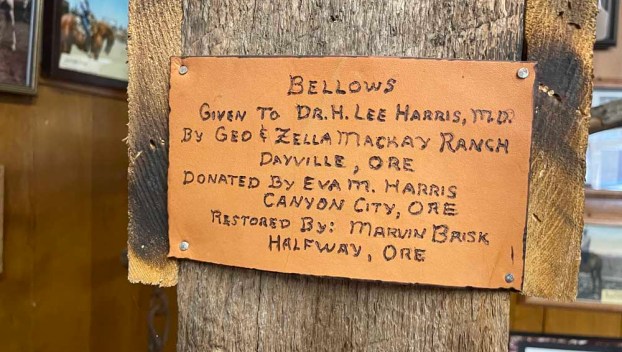 BELLOWS
GIVEN TO DR. H. LEE HARRIS, M.D.
BY GEO & ZELLA MACKAY RANCH
DAYVILLE, ORE
DONATED BY EVA M. HARRIS
CANYON CITY, ORE
RESTORED BY: MARVIN BRISK
HALFWAY, ORE